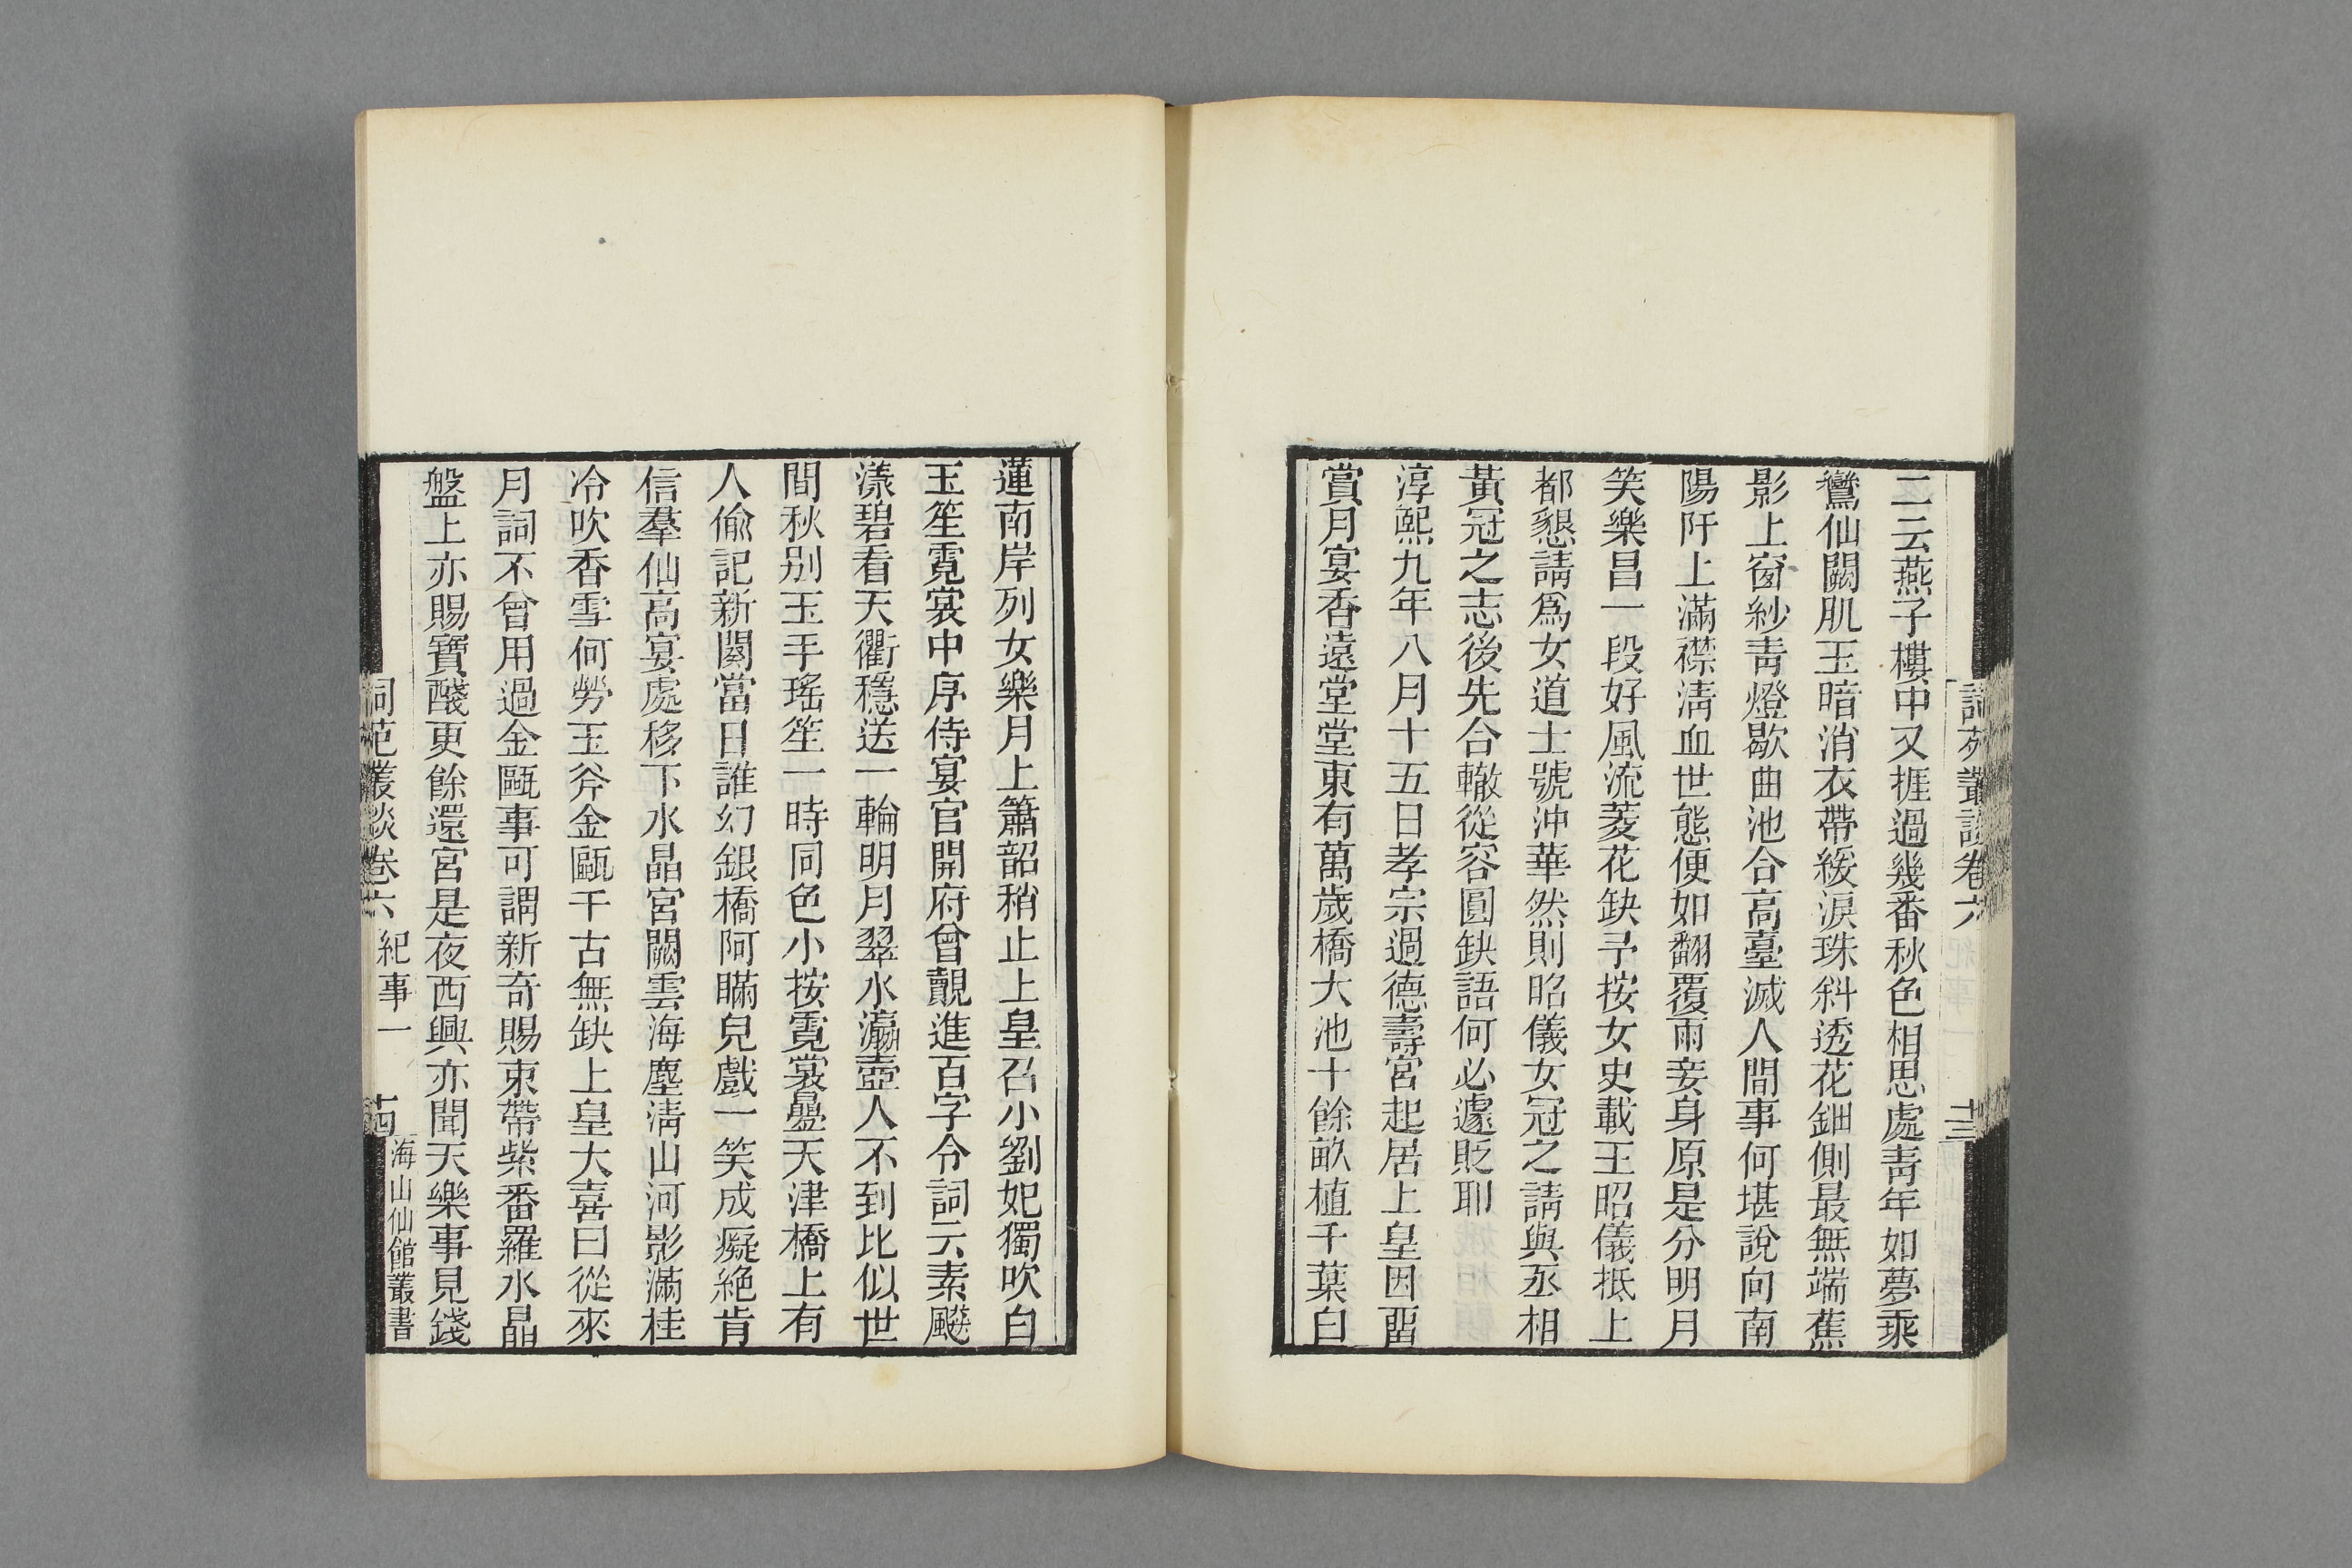 詞苑叢談卷六
十三
二云燕子樓中又捱過幾番秋色相思處靑年如夢乘
鸞仙闕肌玉暗消衣帶緩淚珠斜透花鈿側最無端蕉
影上窗紗靑燈歇曲池合高臺滅人間事何堪說向南
陽阡上滿襟淸血世態便如翻覆雨妾身原是分明月
笑樂昌一段好風流菱花缺予按女史載王昭儀抵上
都懇請爲女道士號沖華然則昭儀女冠之請與丞相
黃冠之志後先合轍從容圓缺語何必遽貶耶
淳熙九年八月十五日孝宗過德壽宮起居上皇因畱
賞月宴香遠堂堂東有萬歲橋大池十餘畝植千葉白
蓮南岸列女樂月上簫韶稍止上皇召小劉妃獨吹白
玉笙霓裳中序侍宴官開府曾覿進百字令詞云素飈
漾碧看天衢穩送一輪明月翠水瀛壺人不到比似世
間秋别玉手瑤笙一時同色小按霓裳疊天津橋上有
人偷記新闋當日誰幻銀橋阿瞞兒戲一笑成癡絶肯
信羣仙高宴處移下水晶宮闕雲海塵淸山河影滿桂
冷吹香雪何勞玉斧金甌千古無缺上皇大喜曰從來
月詞不曾用過金甌事可謂新奇賜束帶紫番羅水晶
盤上亦賜寶醆更餘還宮是夜西興亦聞天樂事見錢
詞苑叢談卷六 紀事一
十四
海山仙館叢書